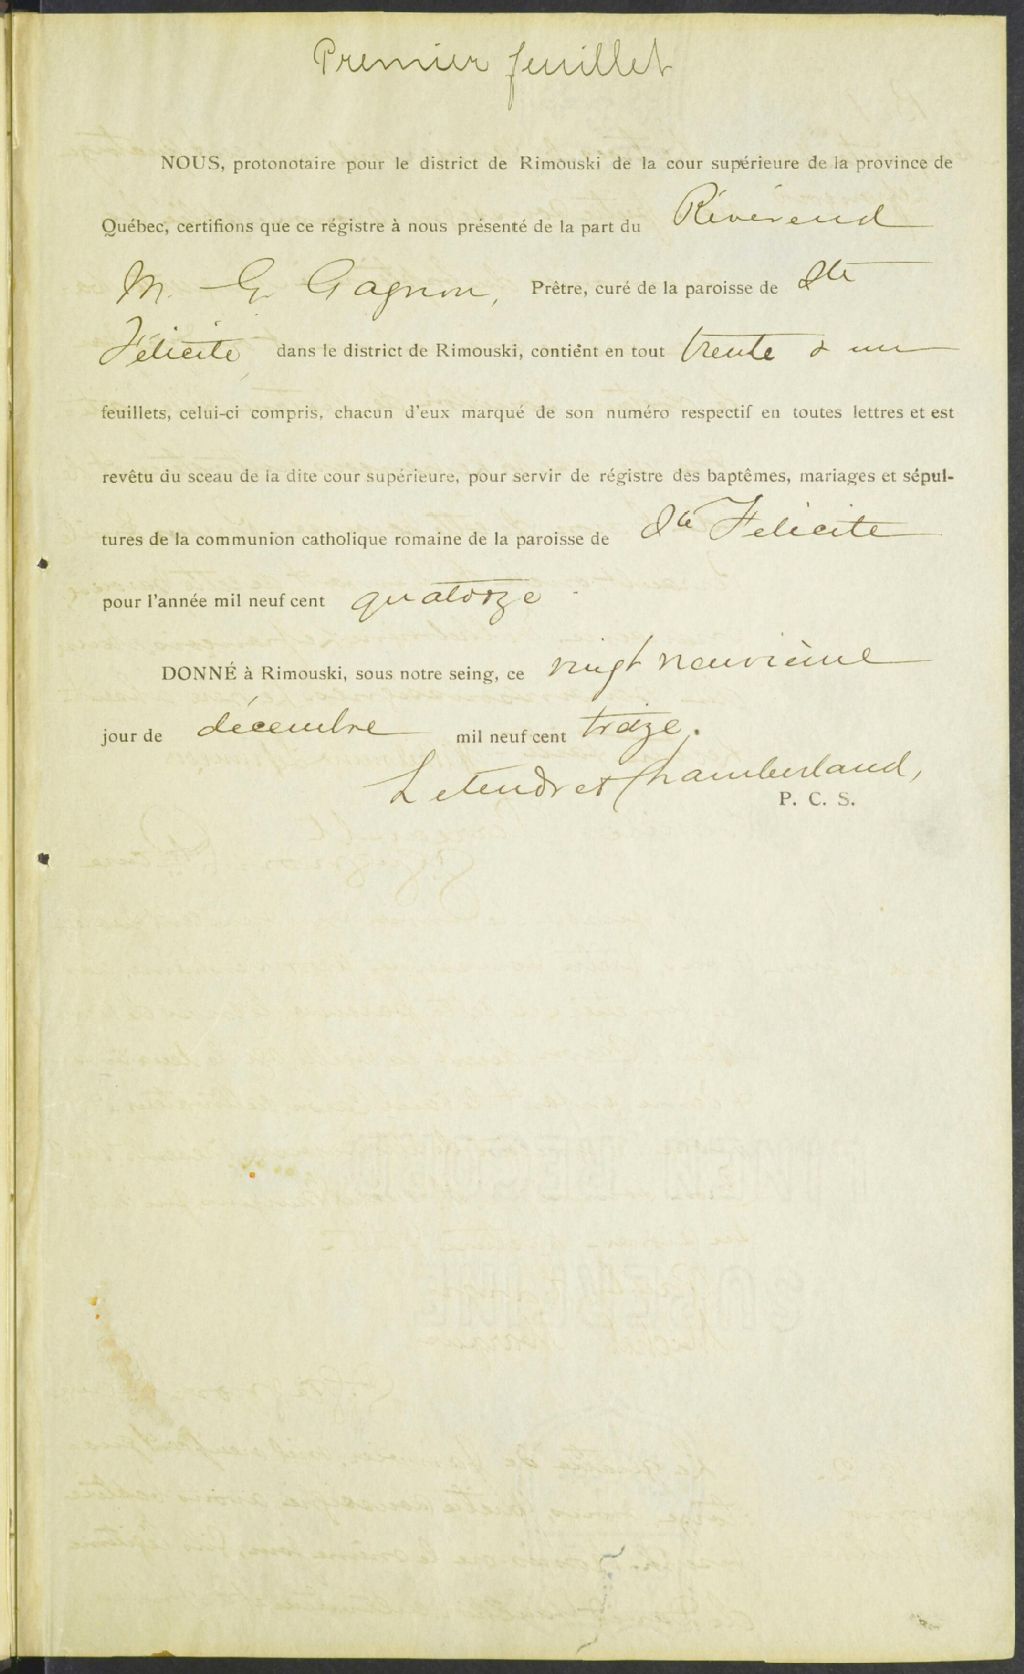 Premier feuillet
NOUS, protonotaire pour le district de Rimouski de la cour supérieure de la province de
Québec, certifions que ce régistre à nous présenté de la part du Révérend
M. G. Gagnon, Prêtre, curé de la paroisse de Ste
Félicité, dans le district de Rimouski, contient en tout trente & un
feuillets, celui-ci compris, chacun d'eux marqué de son numéro respectif en toutes lettres et est
revêtu du sceau de la dite cour supérieure, pour servir de régistre des baptêmes, mariages et sépul-
tures de la communion catholique romaine de la paroisse de Ste Félicité
pour l'année mil neuf cent quatorze
DONNÉ à Rimouski, sous notre seing, ce vingt neuvième
jour de décembre mil neuf cent treize.
Letendre & Chamberland,
P. C. S.